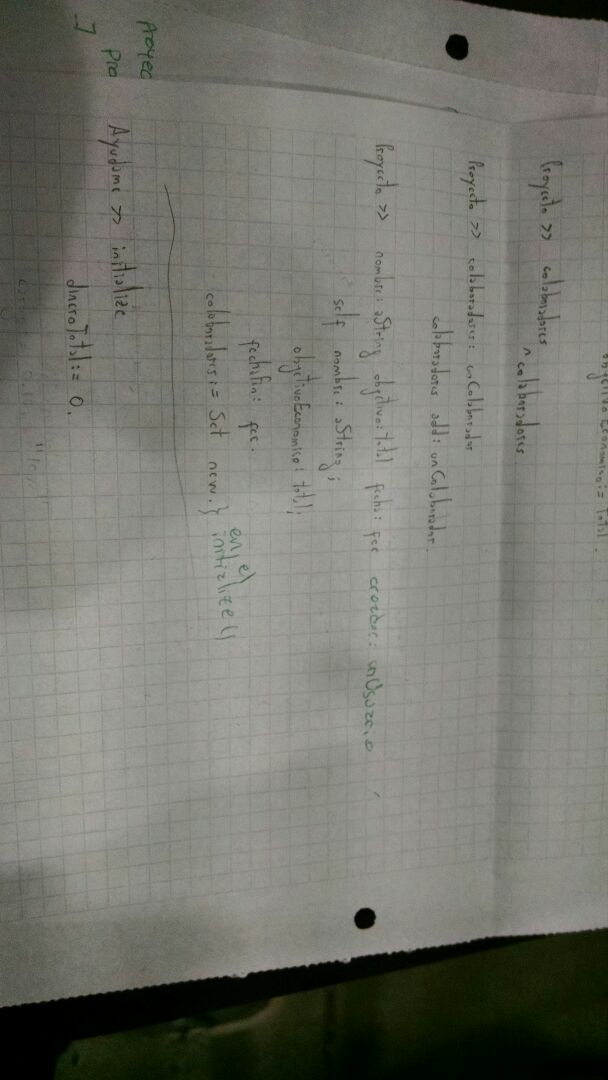 objetivoEconomico := Total.
Proyecto >> colaboradores
^ colaboradores.
Proyecto >> colaboradores: unColaborador
colaboradores add: unColaborador.
Proyecto >> nombre: aString objetivo: total fecha: fec creador: unUsuario
self nombre: aString;
objetivoEconomico: total;
fechaFin: fec.
colaboradores := Set new. } en el
initialize()
Proyec
Ayudame >> initialize
Pro
dineroTotal := 0.
]